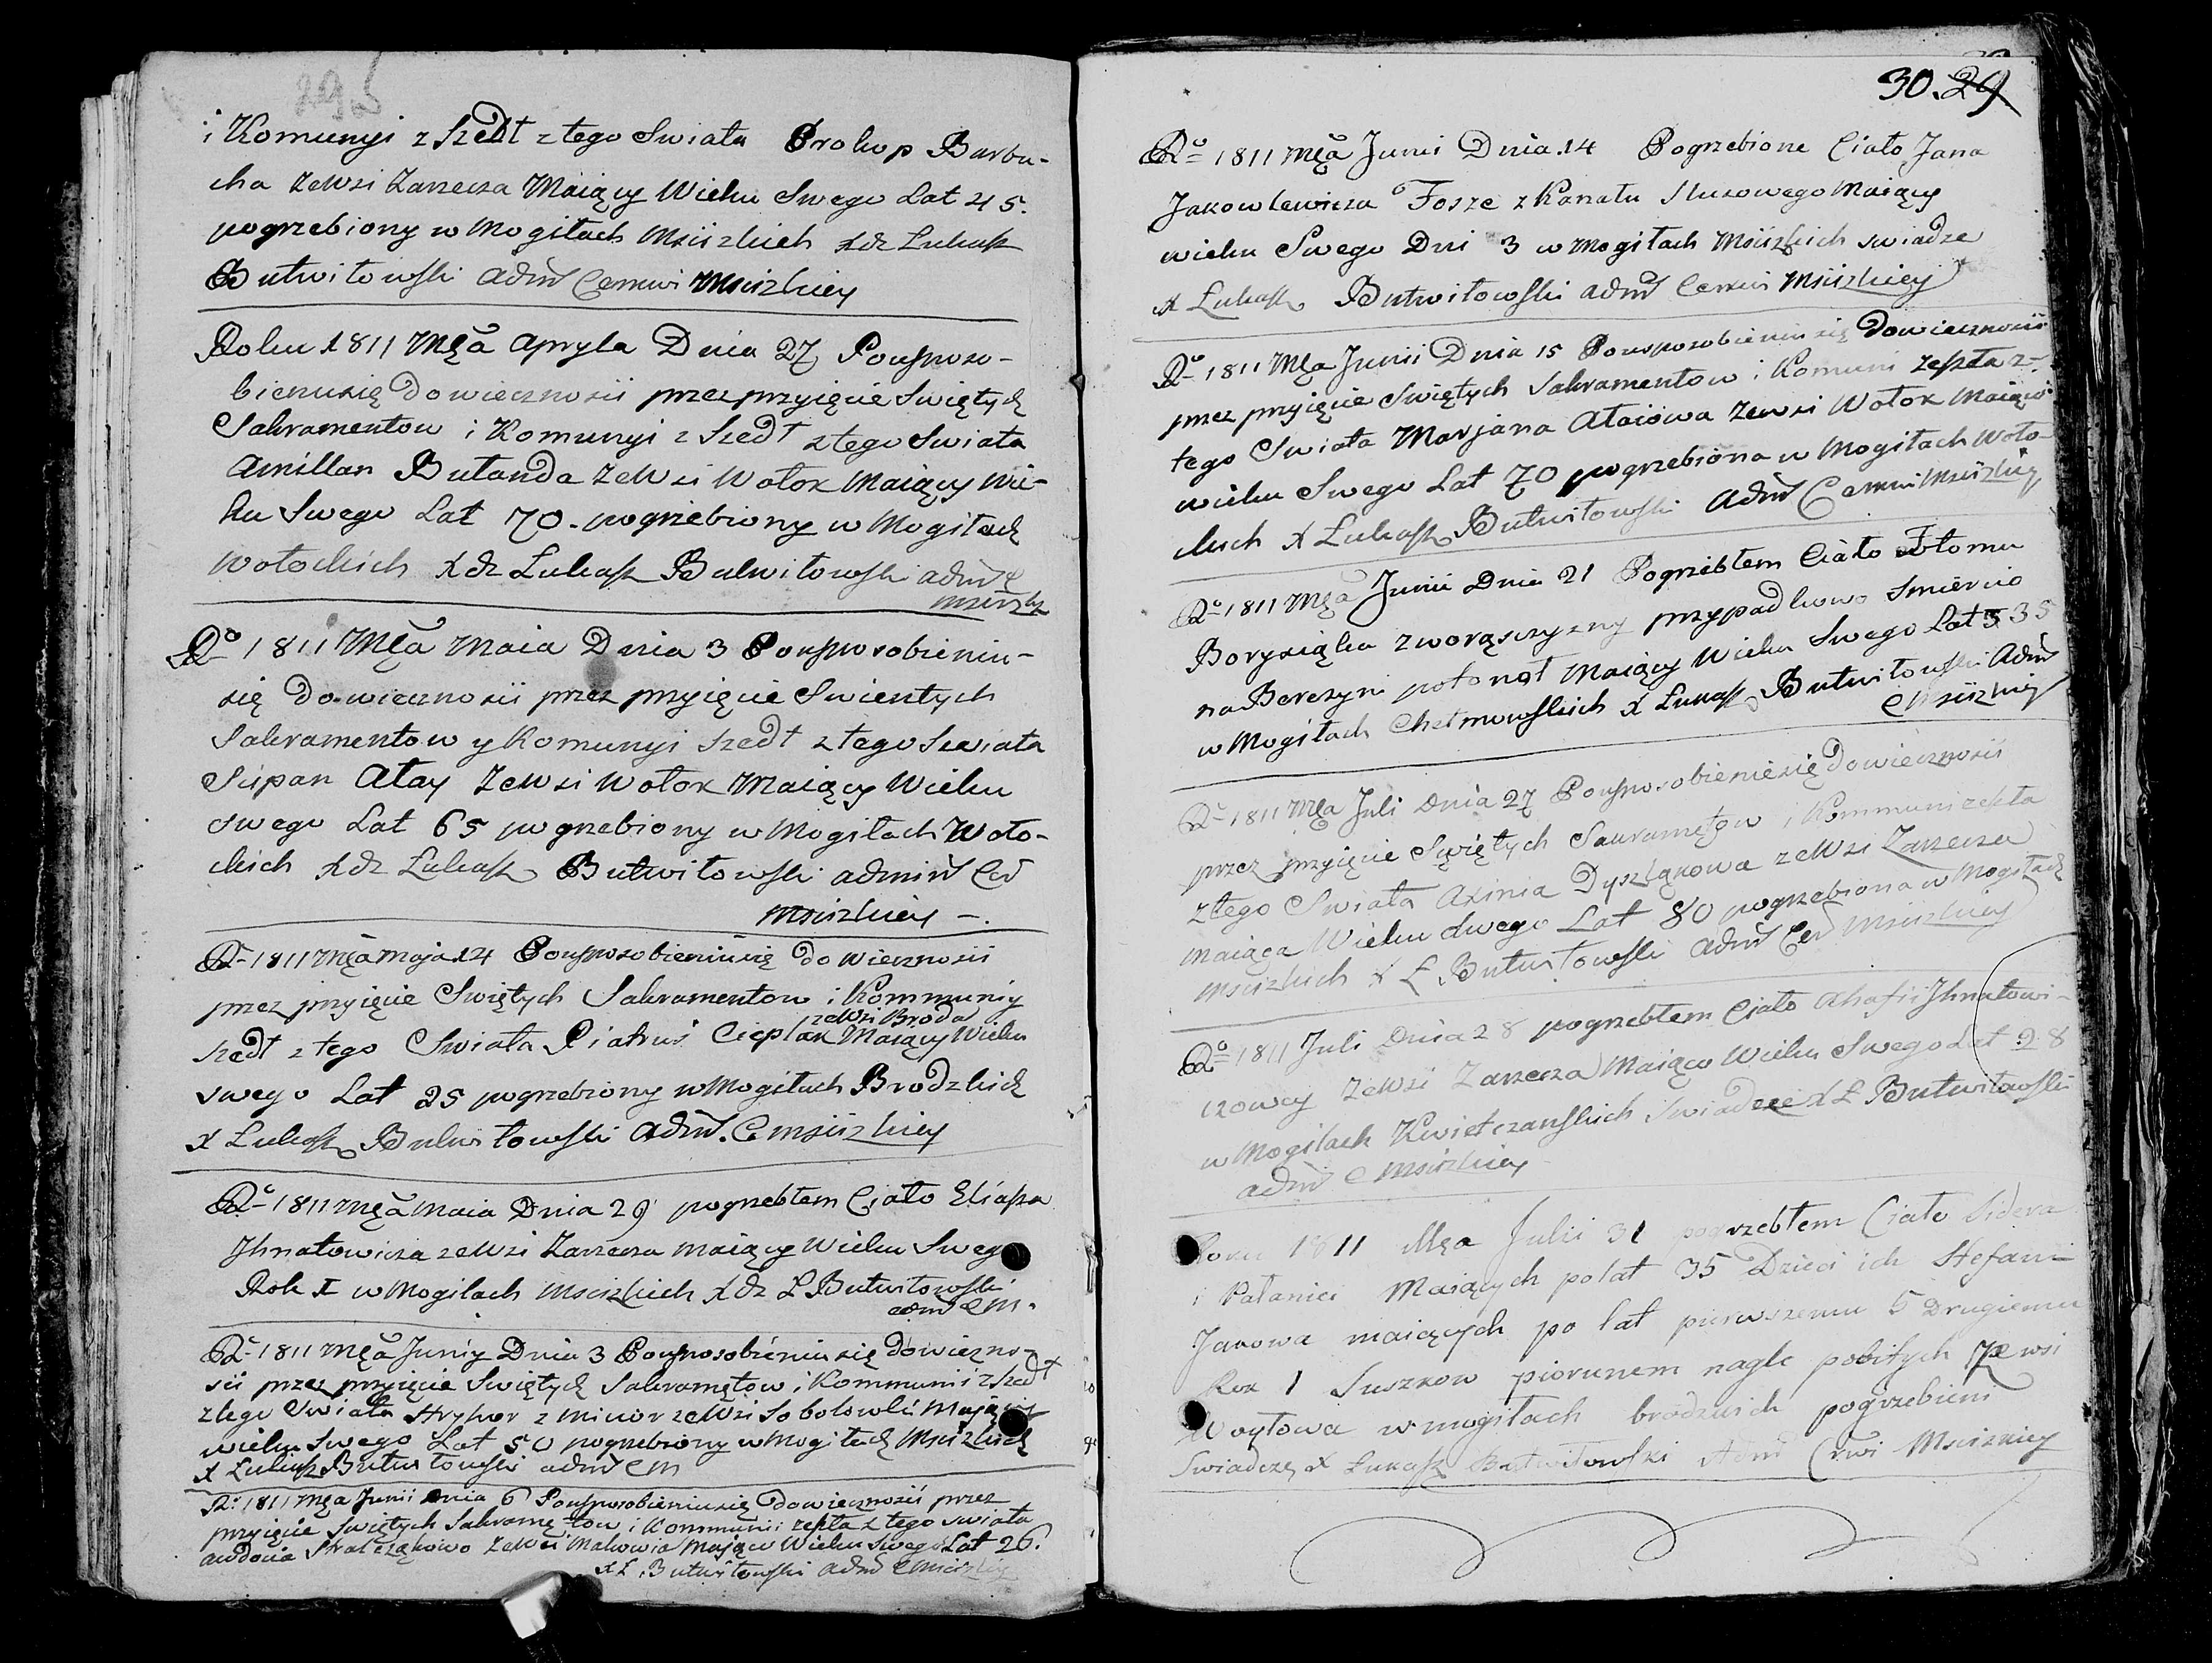 29
i Komunyi z Szedł z tego Swiata Prokop Barba-
cha zeWsi Zarzecza Maiący Wieku Swego Lat 45.
pogrzebiony w Mogiłach Msciżkich Xdz Łukasz
Butwiłowski adm̃ Cerkwi Msciżkiey
Roku 1811 Mca apryla Dnia 27 Pousposo-
bieniusię dowiecznosii przez przyięcie Swiętych
Sakramentow i Komunyi z Szedł z tego Swiata
Amillan Butanda zeWsi Wołok Maiący Wie-
ku Swego Lat 70 - pogrzebiony w Mogiłach
Wołockich Xdz Łukasz Butwiłowski adm̃ C
Msciżky
Ro 1811 Mca Maia Dnia 3 Pousposobieniu-
się do wiecznosii przez przyięcie Swientych
Sakramentow y Komunyi Szedł z tego Swiata
Scipan Ałay zeWsi Wołok Maiący Wieku
swego Lat 65 pogrzebiony w Mogiłach Woło-
ckich Xdz Łukasz Butwiłowski admin̄ Cer̃
Msciżkiey -.
Ro 1811 Mca Maja 14 Pousposobieniusię do Wiecznosii
przez przyięcie Swiętych Sakramentow i Kommuniy
zeWsi Broda
szedł z tego Swiata Piatrus Cieplak Maiący Wieku
swego Lat 25 pogrzebiony w Mogiłach Brodzkich
X Łukasz Butwiłowski adm̃. C Msciżkiey
Ro 1811 Mca Maia Dnia 29 pogrzebłem Ciało Eliasza
Ihnatowicza zeWsi Zarzecza maiący Wieku Sweg
Rok I w Mogiłach Msciżkich Xdz Ł Butwiłowski
adm̃ C M.
Ro 1811 Mca Juniy Dnia 3 Pousposobieniu się dowieczno-
sii przez przyięcie Swiętych Sakramętow i Kommunii z Szedł
z tego Swiata Hryhor z Minor zeWsi Sobolowki Mający
wieku Swego Lat 50 pogrzebiony w Mogiłach Msciżkich
X Łukasz Butwiłowski adm̃ C M
R: 1811 Mca Junii Dnia 6 Pousposobieniusię dowiecznosii przez
przyięcie Swiętych Sakramę-tow i Kommunii zeszła z tego swiata
awdocia zeWsi Mająca Wieku Swego Lat 26.
X Ł Butwiłowski adm̃ C Msciżkiey
30. 29
Ro 1811 Mca Junii Dnia 14 Pogrzebione Ciało Jana
Jakowlewicza Fosze z Kanału Sluzowego Maiący
wieku Swego Dni 3 w Mogiłach Msciżkich swiadze
X Łukasz Butwiłowski adm̃ Cerkwi Msciżkiey
Ro 1811 Mca Junii Dnia 15 Pousposobieniu się Dowiecznosii
przez przyięcie Swiętych Sakramentow i Komuni zeszła z-
tego Swiata Marjana Ałaiowa zewsi Wołok Maiąca
wieku Swego Lat 70 pogrzebiona w Mogiłach Woło-
ckich X Łukasz Butwiłowski adm̃ Cerkwi Msciżkiey
Ro 1811 Mca Junii Dnia 21 Pogrzebłem Ciało Jłomu
Borysiąka przypadkowo Smiercio
na Berezyni potonął Maiący Wieku Swego Lat 35
w Mogiłach Chełmowskich X Łukasz Butwiłowski Adm̃
C Msciżkiey
Ro 1811 Mca Juli Dnia 27 Pousposobieniesię Dowiecznosii
przez przyięcie Swiętych Sakramętow i Kommuni zeszła
z tego Swiata Axinia Dyszląkowa zeWsi Zarzecza
maiąca Wieku swego Lat 80 pogrzebiona w Mogiłach
Msciżkich X Ł Butwiłowski adm̃ Cer̃ Msciżkiey
Ro 1811 Juli Dnia 28 pogrzebłem Ciało Ahafii Ihnatowi-
czowey zeWsi Zarzecza Maiąco Wieku Swego Lat 28
w Mogiłach Kwietczanskich Swiadcze X Ł Butwiłowski
adm̃ C Msciżkiey
Roku 1811 Mca Julii 31 pogrzebłem Ciało Sidera
i Pałanici Maiących po lat 35 Dzieci ich Stefan i
Jakowa maiących po lat pierwszemu 5 Drugiemu
Rok 1 Suszkow piorunem nagle pobitych ze wsi
Woyłowa w mogiłach brodzkich pogrzebieni
Swiadczę X Łukasz Butwiłowski Adm̃ Crkwi Msciskiey